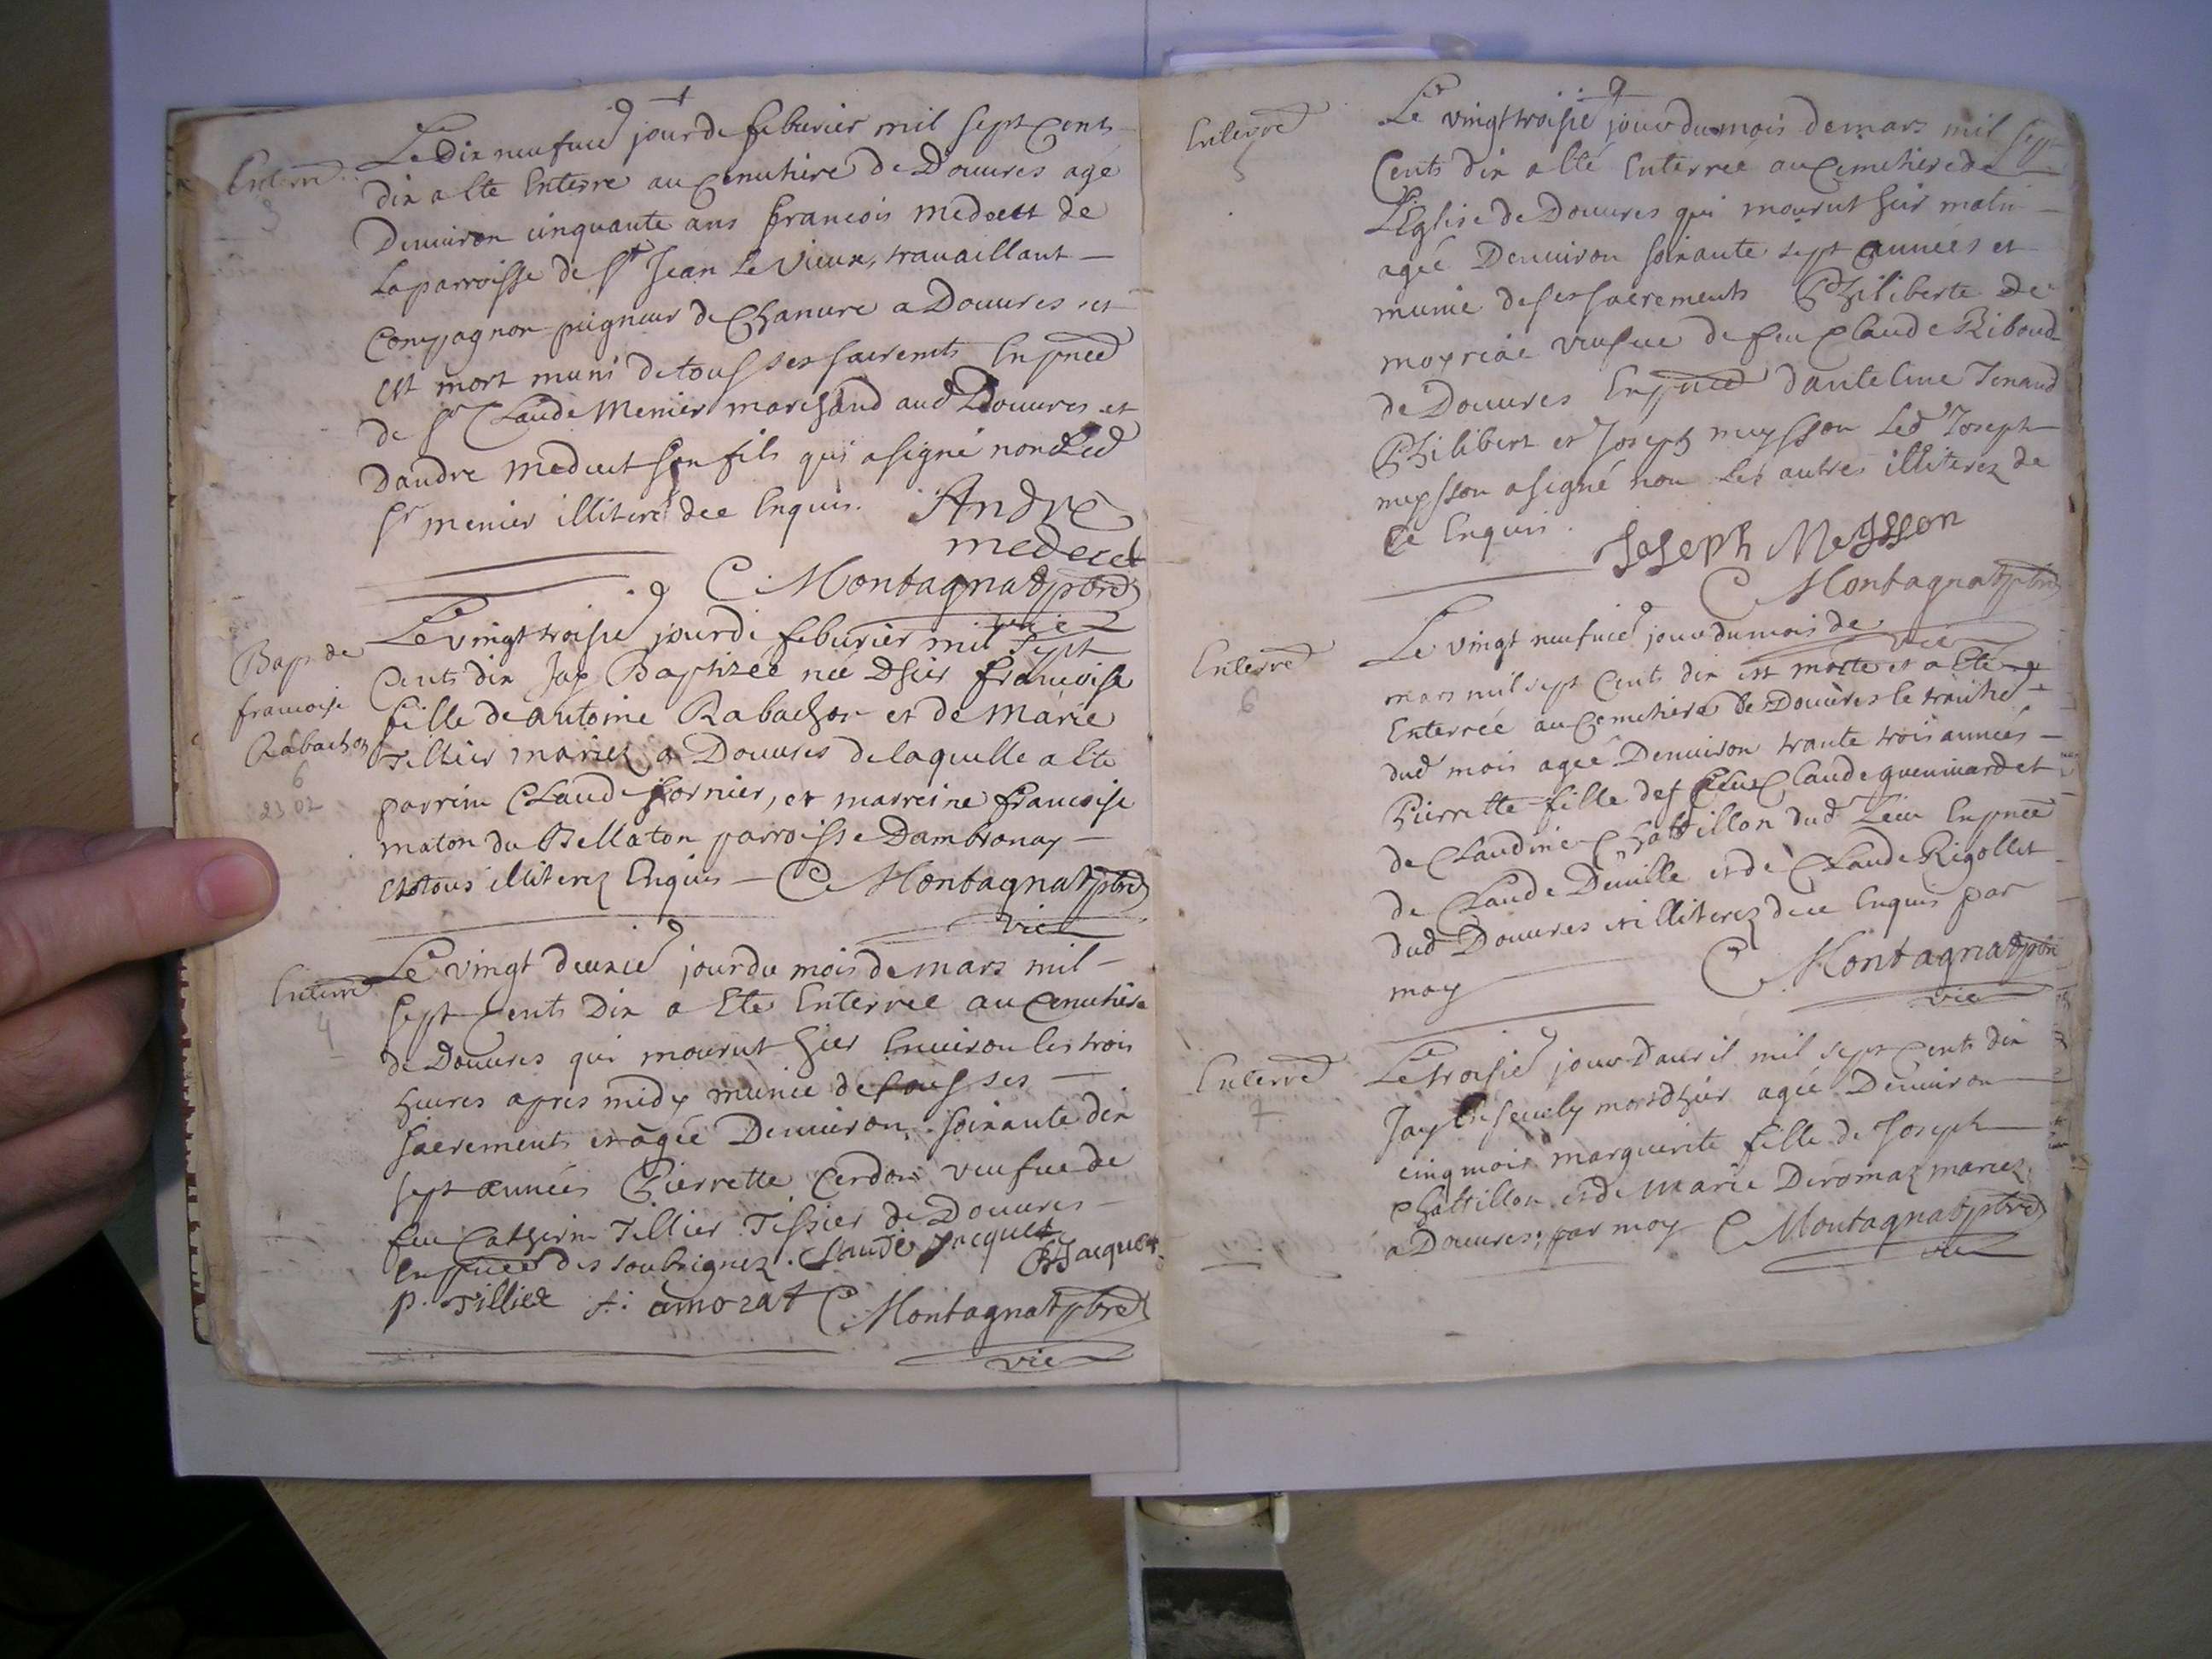 Enterré
3
Le dix neufuie jour de feburier mil sept cents
dix a esté Enterre au Cemetiere de Douures agé
Denuiron cinquante ans francois medecet de
la parroisse de St Jean le Vieux, trauaillant
compagnon peigneur de Chanure a Douures et
est mort muni de tous ses sacrements En pnce
de sr Claude Menier marchand aud Douures et
Dandre medecet son fils qui a signé non Led
Sr menier illiteré de ce Enquis. Andre
medecet
C Montagnat ptre
vic
Bap. de
francoise
Rabachon
6
23 02
Le vingt troisie jour de feburier mil sept
Cents dix Jay Baptizée née dhier francoise
fille de antoine Rabachon et de Marie
Tillier mariez a Douures de laquelle a esté
parrin Claude fornier, et marreine francoise
maton du Bellaton parroisse Dambronay
et tous illiterez Enquis C Montagnat ptre
vic
Enterré
4
Le vingt deuxie jour du mois de mars mil
sept Cents Dix a Eté Enterrée au Cemetiere
de Douures qui mourut hier Enuiron les trois
heures apres midy munie de tous ses
sacrements et agée Denuiron soixante dix
sept années Pierrette Cerdon veufue de
feu Catherin Tillier Tissier de Douures
En pnce des soubsignez. Claude Jacquet
Jacquet
p. Tillier A. amorat C Montagnat ptre
vic
Enterré
5
Le vingt troisie jour du mois de mars mil sept
Cents dix a esté Enterrée au Cemetiere de
L'Eglise de Douures qui mourut hier matin
agée Denuiron soixante sept années et
munie de ses sacrements Philiberte de
moyriae veufue de feu Claude Riboud
de Douures En pnce danteline Tenand
Philibert et Joseph meysson Led Joseph
meysson a signé non les autres illiterez de
ce Enquis. Joseph Meysson
C Montagnat ptre
vic
Enterré
6
Le vingt neufuie jour du mois de
mars mil sept Cents dix est morte et a Eté
Enterrée au Cemetiere de Douures le trantie
dud mois agée Denuiron trante trois années
Pierrette fille de feu Claude gueninard et
de Claudine Chattillon dud Lieu En pnce
de Claude Deuille et de Claude Rigollet
dud Douures et illiterez de ce Enquis par
moy C Montagnat ptre
vic
Enterré
7
Le troisie jour dauril mil sept Cents dix
Jay Enseuely mort dhier agée Denuiron
cinq mois marguerite fille de Joseph
Chattillon et de Marie Deromaz mariez
a Douures, par moy C Montagnat ptre
vic